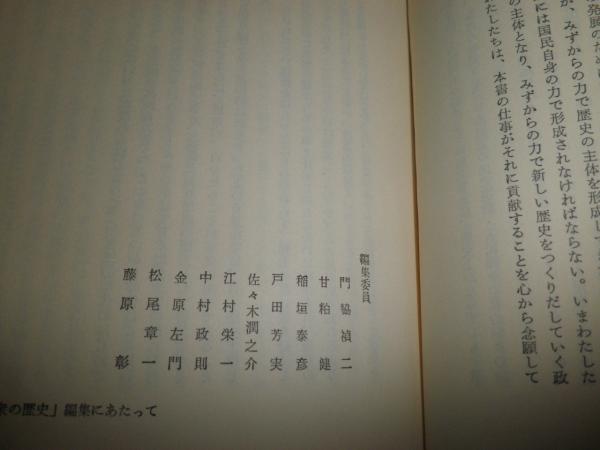 発展のために
が、みずからの力で歴史の主体を形成して
には国民自身の力で形成されなければならない。いまわたした
の主体となり、みずからの力で新しい歴史をつくりだしていく政
たしたちは、本書の仕事がそれに貢献することを心から念願して
編集委員
門脇禎二
甘粕健
稲垣泰彦
戸田芳実
佐々木潤之介
江村栄一
中村政則
金原左門
松尾章一
藤原彰
衆の歴史」編集にあたって